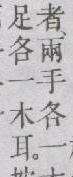 者、兩手各一
足各一木耳。